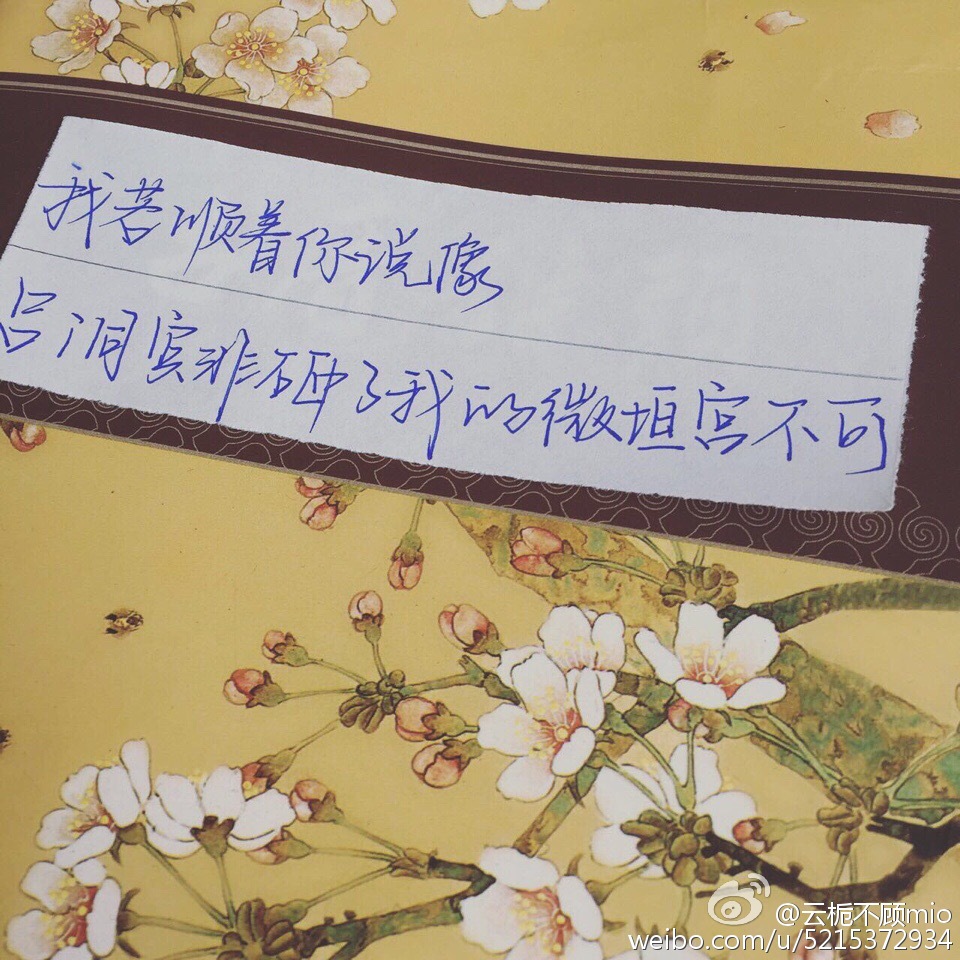 我若顺着你说像
吕洞宾非砸了我的微垣宫不可
@云栀不顾mio
weibo.com/u/5215372934